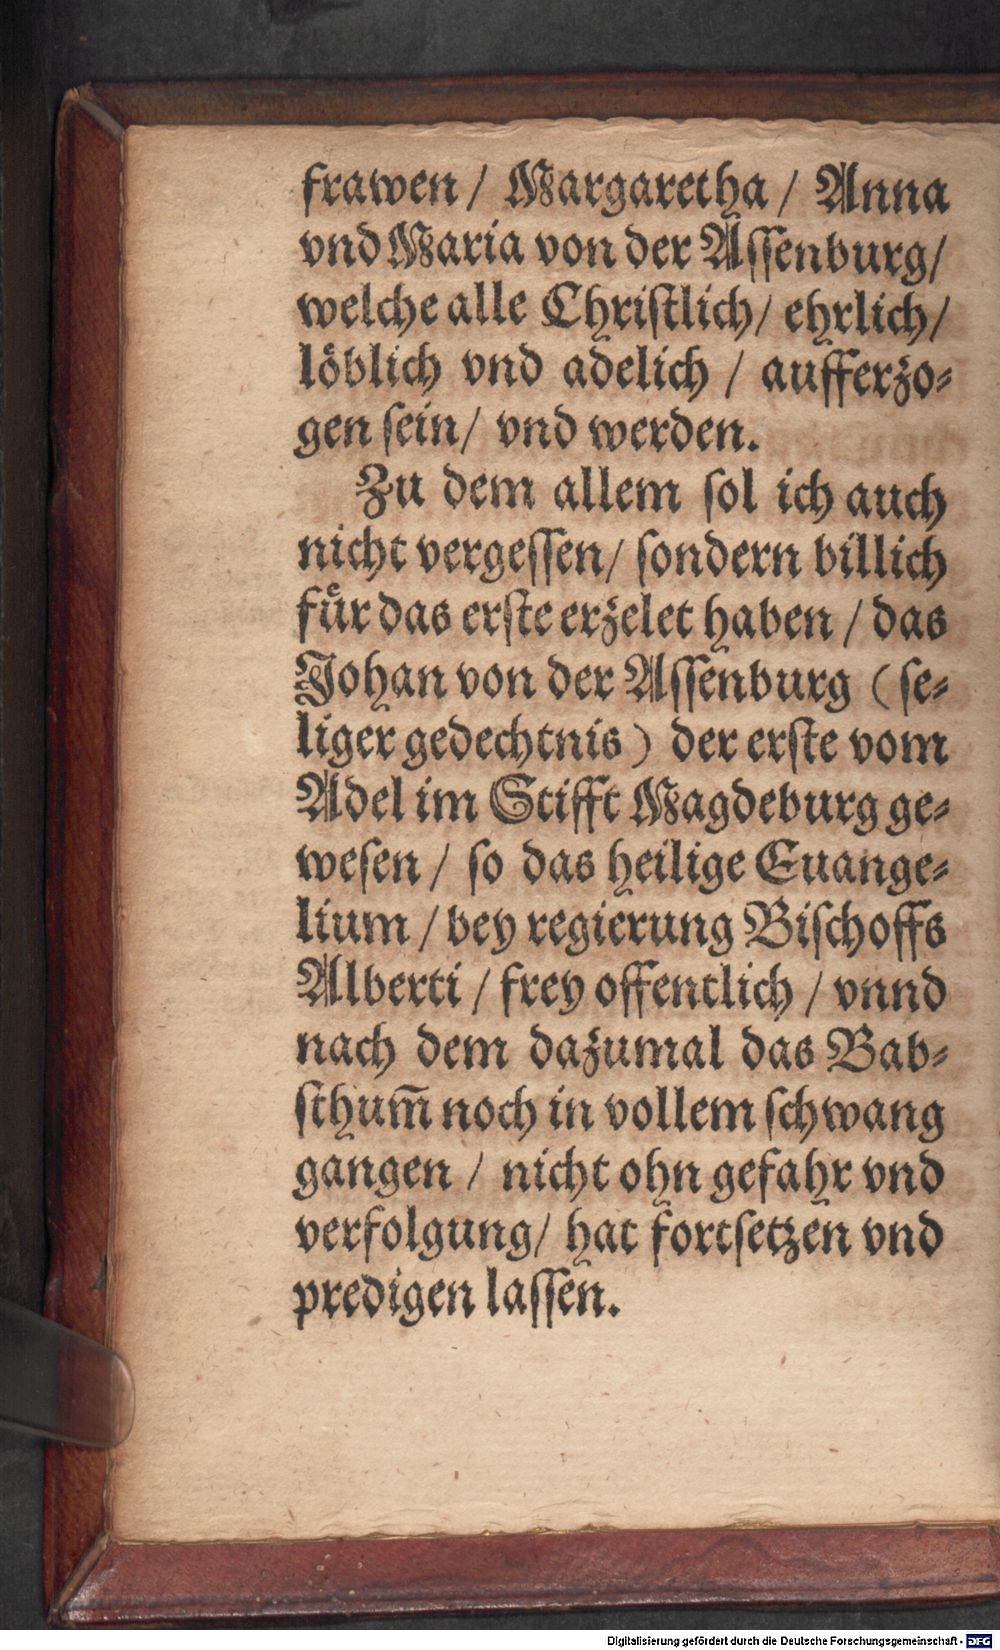 frawen / Margaretha / Anna
vnd Maria von der Assenburg/
welche alle Christlich/ ehrlich/
löblich vnd adelich / aufferzo⸗
gen sein/ vnd werden.
Zu dem allem sol ich auch
nicht vergessen/ sondern billich
fuͤr das erste erzelet haben / das
Johan von der Assenburg (se⸗
liger gedechtnis) der erste vom
Adel im Stifft Magdeburg ge⸗
wesen / so das heilige Euange⸗
lium / bey regierung Bischoffs
Alberti / frey offentlich / vnnd
nach dem dazumal das Bab⸗
sthum̃ noch in vollem schwang
gangen / nicht ohn gefahr vnd
verfolgung/ hat fortsetzen vnd
predigen lassen.
Digitalisierung gefördert durch die Deutsche Forschungsgemeinschaft - DFG